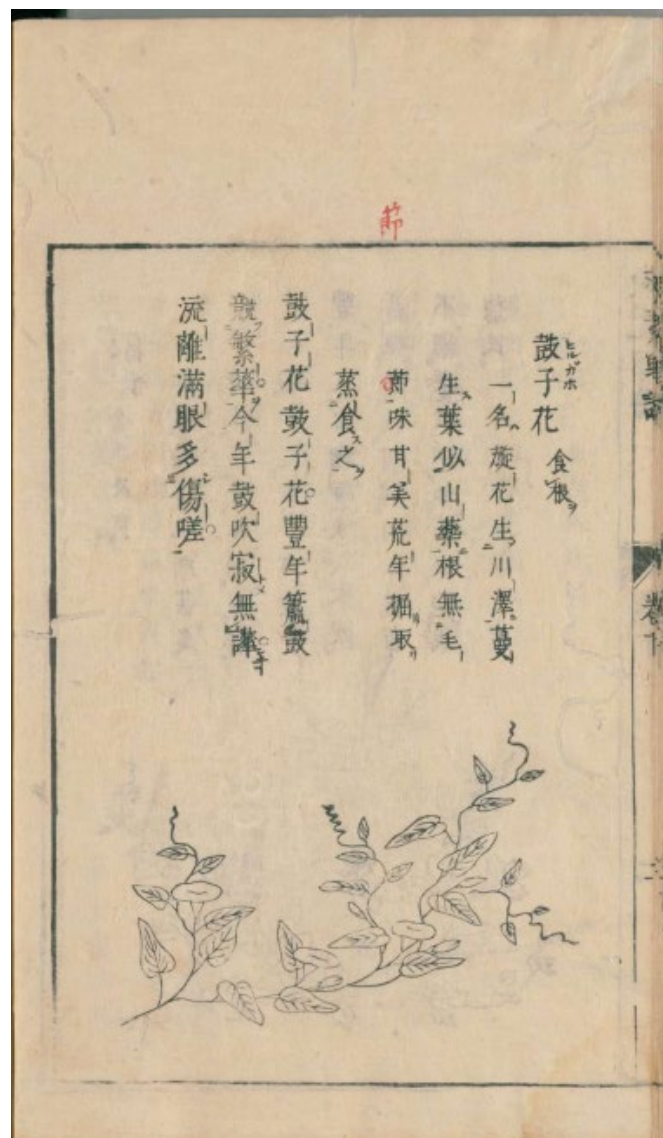 節
鼓子花 食根ヲ
ヒルガホ
一名旋花生川澤蔓
生葉似山藥根無毛
節味甘美荒年掘取
蒸食之
鼓子花鼓子花豐年簫鼓
競繁華今年鼓吹寂無譁
流離滿眼多傷嗟
卷下